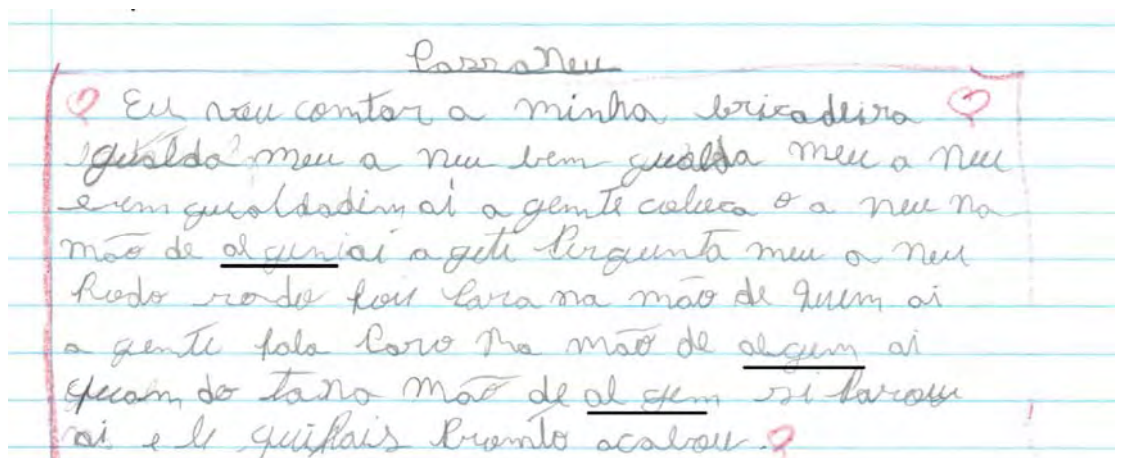 Passa Neu
Eu vou comtar a minha bricadeira
gualda meu a neu bem gualda meu a neu
e em gualdadim ai a gemte coluca o a neu na
mão de algeni ai a gete Pirgunta meu a neu
Rodo rodo foi Para na mão de quem ai
a gente fala Paro Na mão de algem ai
quam do ta na mão de al gem si Parou
ai e le qui fais Promto acabou.